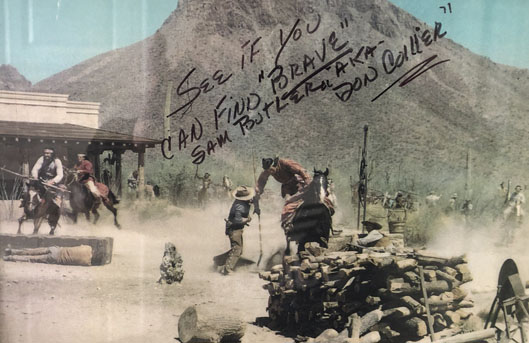 SEE IF YOU
CAN FIND "BRAVE"
SAM BUTLER "AKA"
DON COLLIER"